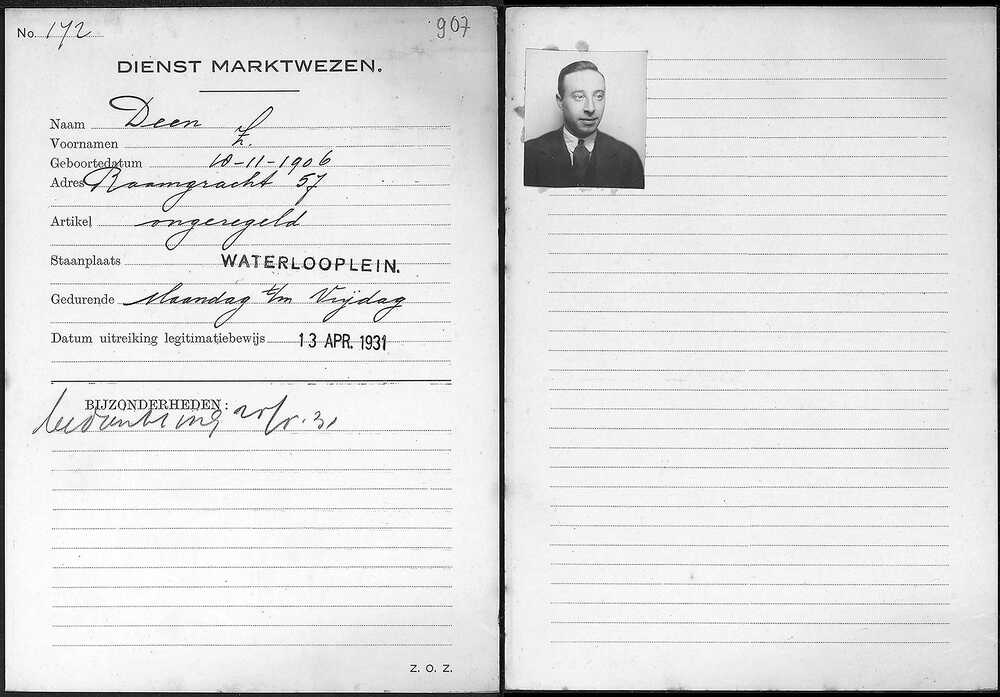 No. 172
907
DIENST MARKTWEZEN.
Naam Deen
Voornamen Z.
Geboortedatum 10-11-1906
Adres Raamgracht 57
Artikel ongeregeld
Staanplaats WATERLOOPLEIN.
Gedurende Maandag t/m Vrijdag
Datum uitreiking legitimatiebewijs 13 APR. 1931
BIJZONDERHEDEN:
Z. O. Z.